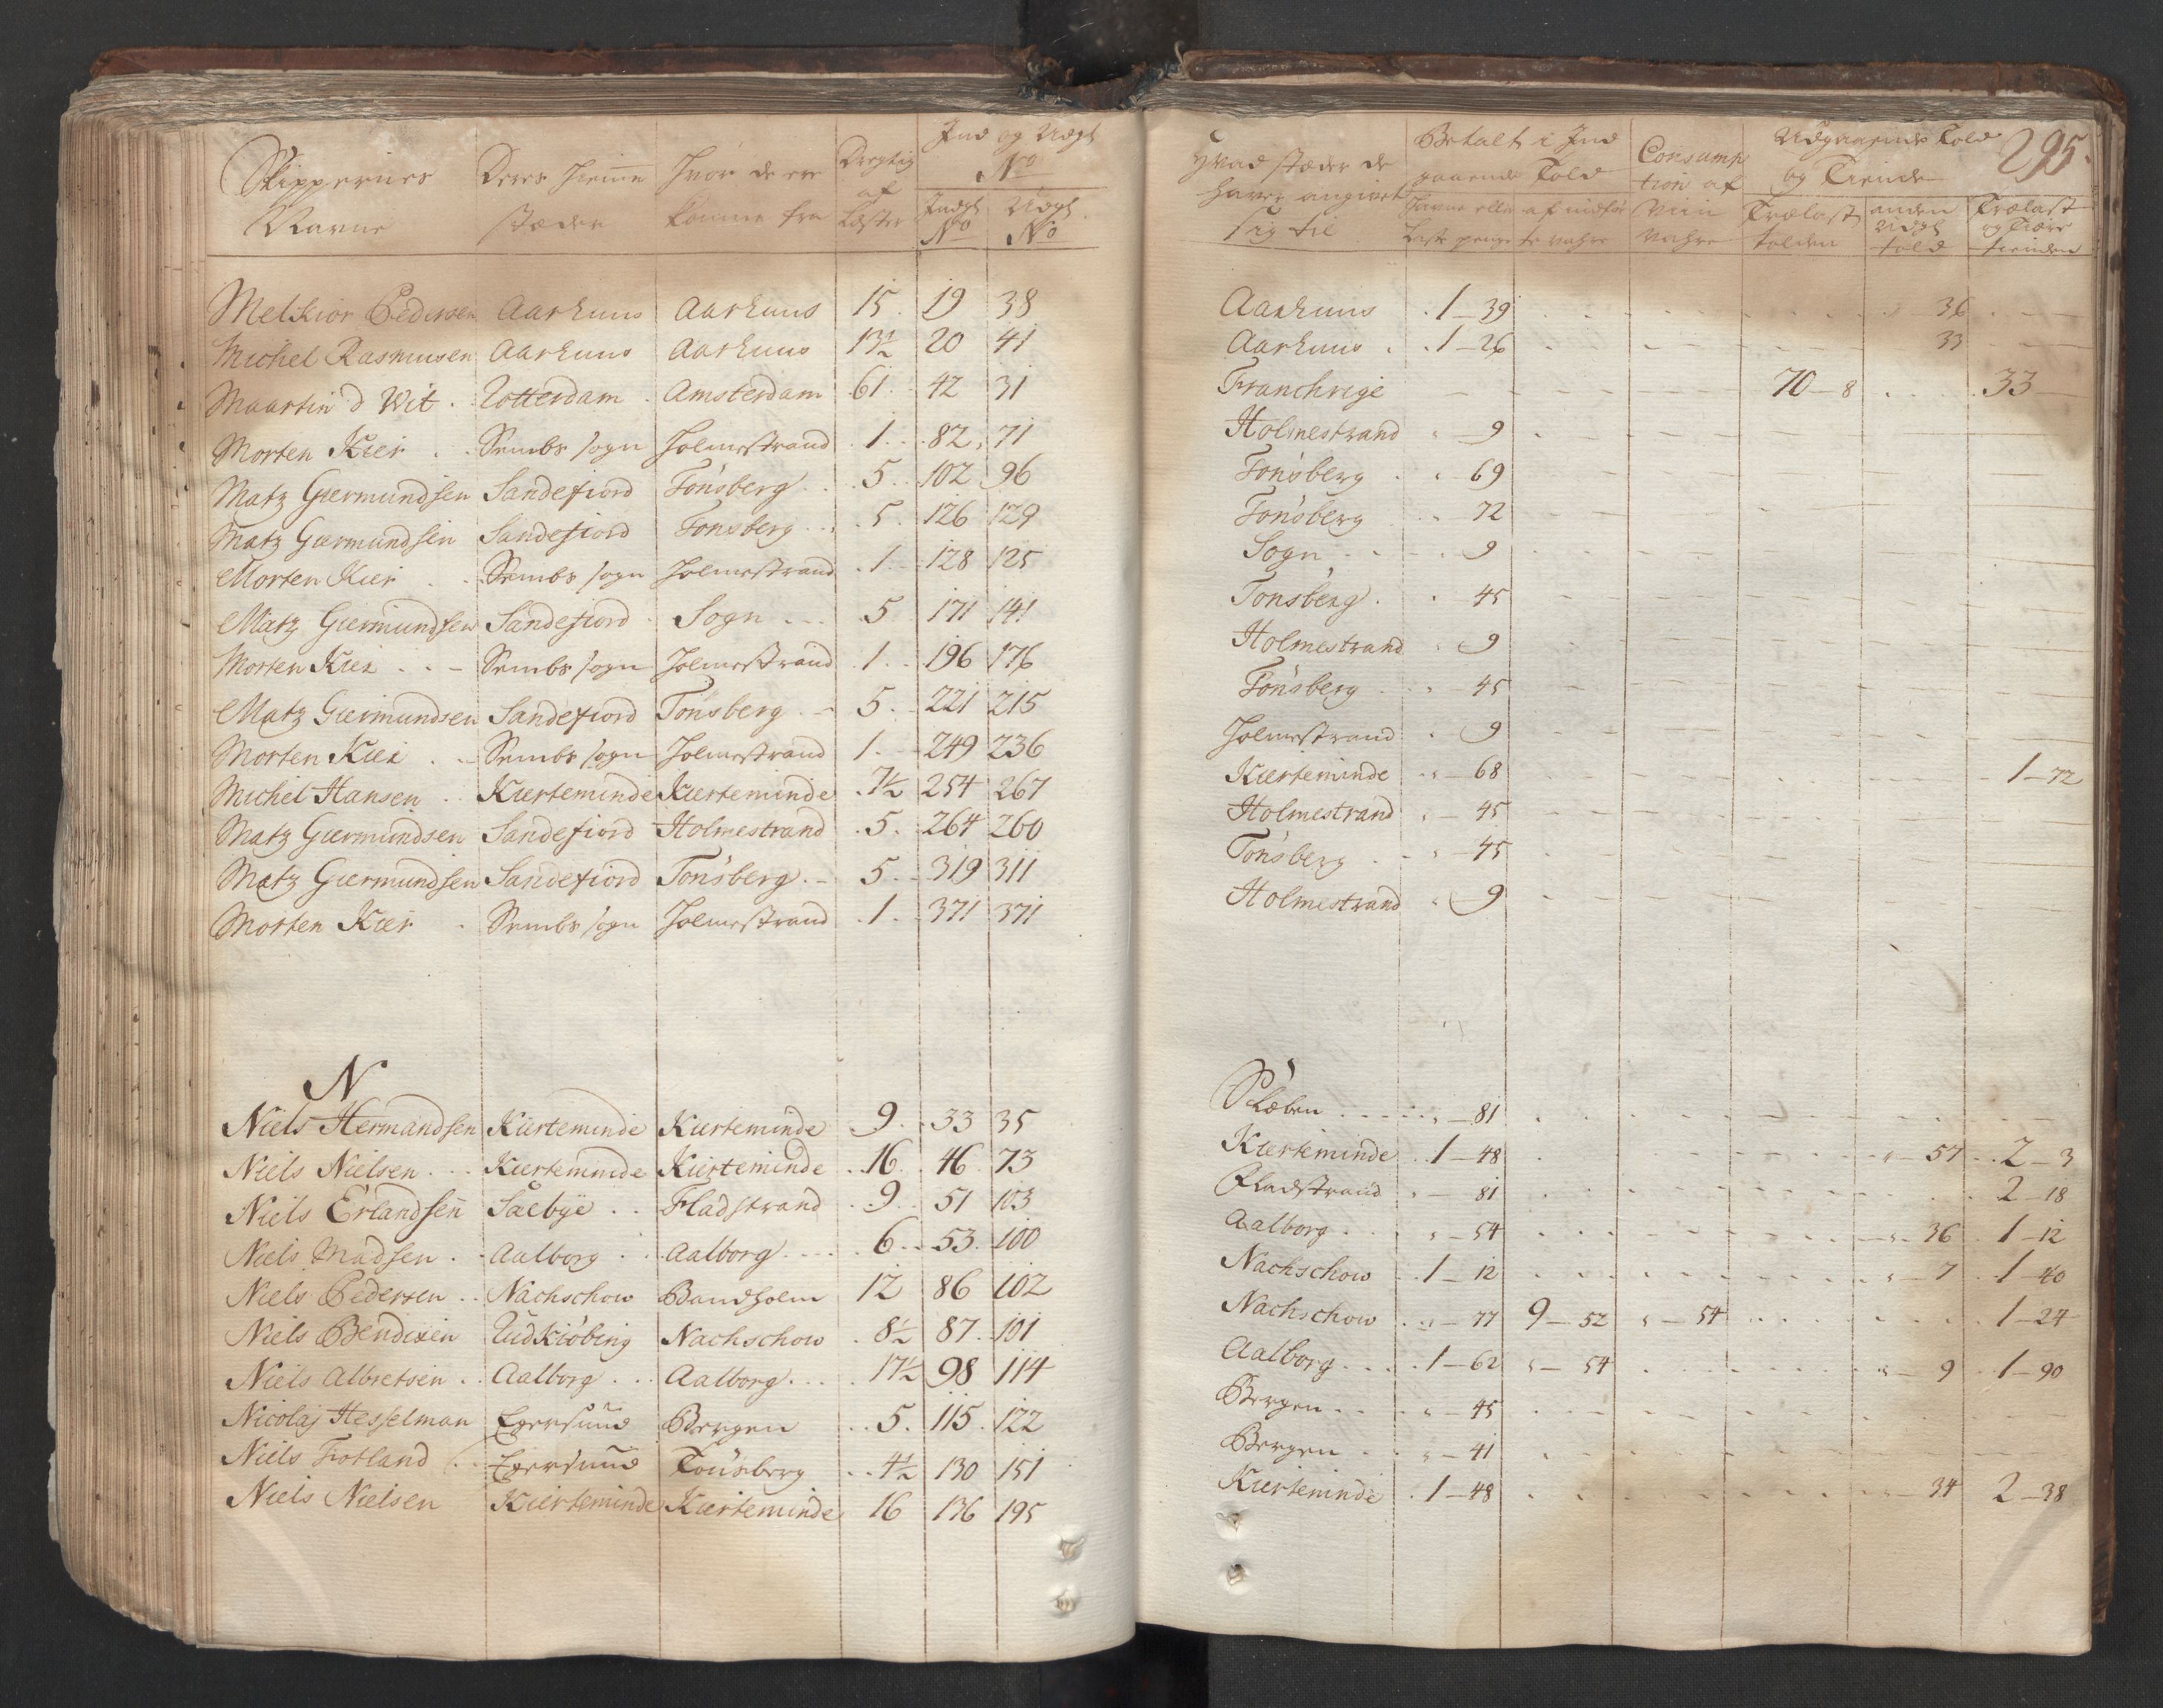 Skippernes Navne | Deres Hiemme stæder | Hvor de ere komne fra | Dregtig af Læster | Ind og Udgt No | Indgt No | Udgt No
Melkior Pedersen | Aarhuus | Aarhuus | 15 | 19 | 38
Michel Rasmusen | Aarhuus | Aarhuus | 13½ | 20 | 41
Maartin d Wit | Rotterdam | Amsterdam | 61 | 42 | 31
Morten Kier | Sembs sogn | Holmestrand | 1 | 82 | 71
Matz Giermundsen | Sandefiord | Tönsberg | 5 | 102 | 96
Matz Giermundsen | Sandefiord | Tonsberg | 5 | 126 | 129
Morten Kier | Sembs sogn | Holmestrand | 1 | 128 | 125
Matz Giermundsen | Sandefiord | Sogn | 5 | 171 | 141
Morten Kier | Sembs sogn | Holmestrand | 1 | 196 | 176
Matz Giermundsen | Sandefiord | Tönsberg | 5 | 221 | 215
Morten Kier | Sembs sogn | Holmestrand | 1 | 249 | 236
Michel Hansen | Kierteminde | Kierteminde | 7½ | 254 | 267
Matz Giermundsen | Sandefiord | Holmestrand | 5 | 264 | 260
Matz Giermundsen | Sandefiord | Tönsberg | 5 | 319 | 311
Morten Kier | Sembs sogn | Holmestrand | 1 | 371 | 371
N
Niels Hermandsen | Kierteminde | Kierteminde | 9 | 33 | 35
Niels Nielsen | Kierteminde | Kierteminde | 16 | 46 | 73
Niels Erlandsen | Saebÿe | Fladstrand | 9 | 51 | 103
Niels Madsen | Aalborg | Aalborg | 6 | 53 | 100
Niels Pedersen | Nachschow | Bandholm | 12 | 86 | 102
Niels Bendixen | Rudkiöbing | Nachschow | 8½ | 87 | 101
Niels Albretsen | Aalborg | Aalborg | 17½ | 98 | 114
Nicolaj Hesselman | Egersund | Bergen | 5 | 115 | 122
Niels Frotland | Egersund | Tönsberg | 4½ | 130 | 151
Niels Nielsen | Kierteminde | Kierteminde | 16 | 136 | 195
295.
Hvad stæder de haver angivet sig til | Betalt i Ind gaaende Told | Havne eller Laste penge | af indför te vahre | Consump tion af Viin Vahre | Udgaaende Told og Tiende | Trælast tolden | anden Udgt told | Trælast og tiære tienden
Aarhuus | 1-39 | 36
Aarhuus | 1-26 | 33
Franchrige | 70-8 | 33
Holmestrand | 9
Tönsberg | 69
Tönsberg | 72
Sogn | 9
Tonsberg | 45
Holmestrand | 9
Tönsberg | 45
Holmestrand | 9
Kierteminde | 68 | 1-72
Holmestrand | 45
Tönsberg | 45
Holmestrand | 9
81
Kierteminde | 1-48 | 57 | 2-3
Fladstrand | 81 | 2-18
Aalborg | 54 | 36 | 1-12
Nachschow | 1-12 | 7 | 1-40
Nachschow | 77 | 9-52 | 54 | 1-24
Aalborg | 1-62 | 54 | 9 | 1-90
Bergen | 45
Bergen | 41
Kierteminde | 1-48 | 34 | 2-38